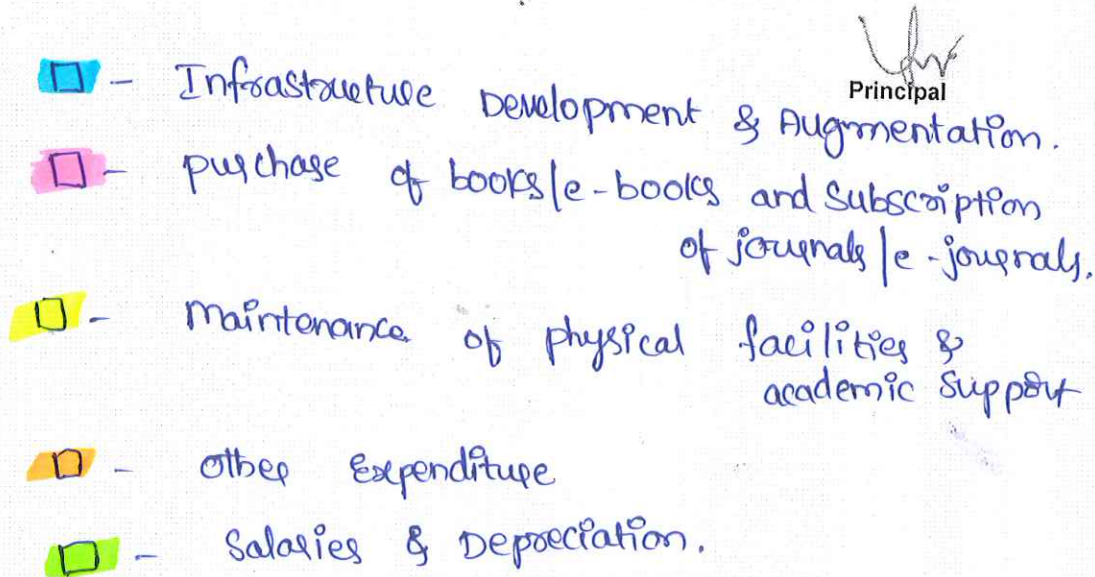 Principal
- Infrastructure Development & Augmentation.
- purchase of books/e-books and Subscription
of journals/e-journals.
- Maintenance of physical facilities &
academic Support
- Other Expenditure
- Salaries & Depreciation.